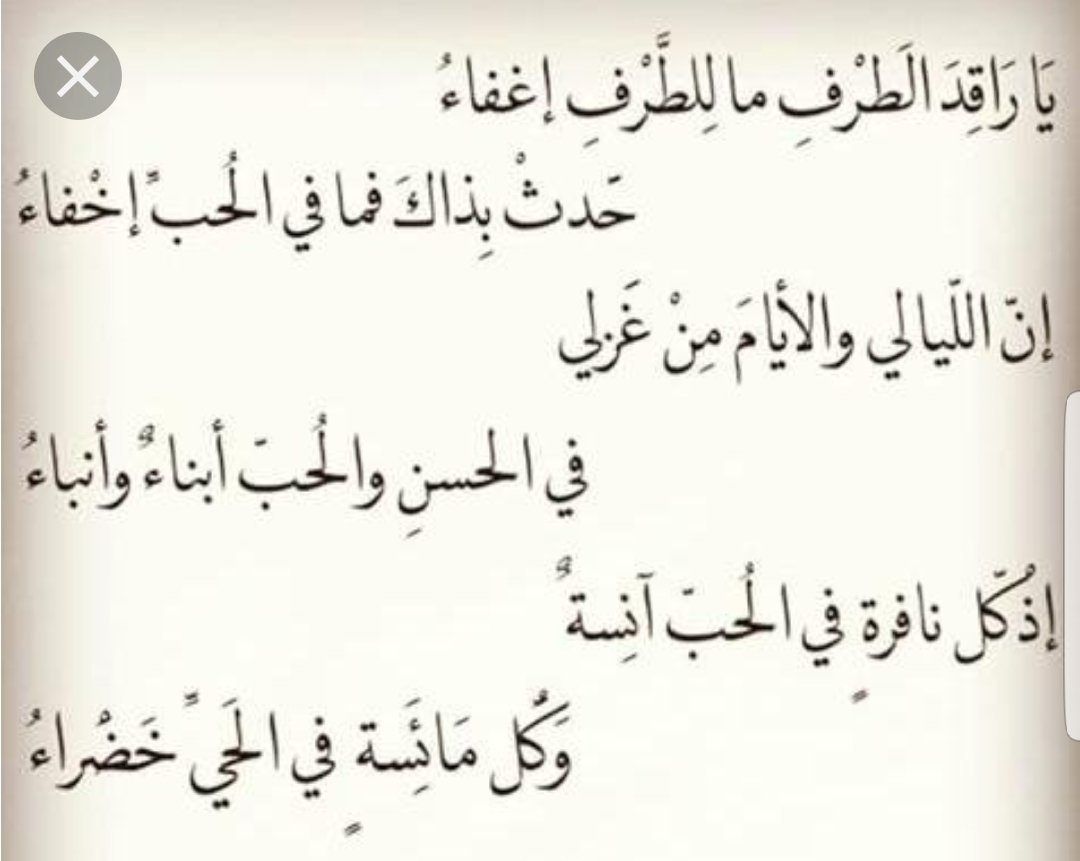 يَا رَاقِدَ الَطرْفِ ما لِلطَّرْفِ إغفاءُ
حَّدثْ بِذاكَ فما في الُحبِّ إخْفاءُ
إنّ اللّيالي والأيامَ مِنْ غَزلي
في الحسنِ والُحبّ أبناءٌ وأنباءُ
إذْ كّل نافرةٍ في الُحبّ آنِسةٌ
وَكُّل مَائَِسةٍ في الَحيِّ خَضْراءُ